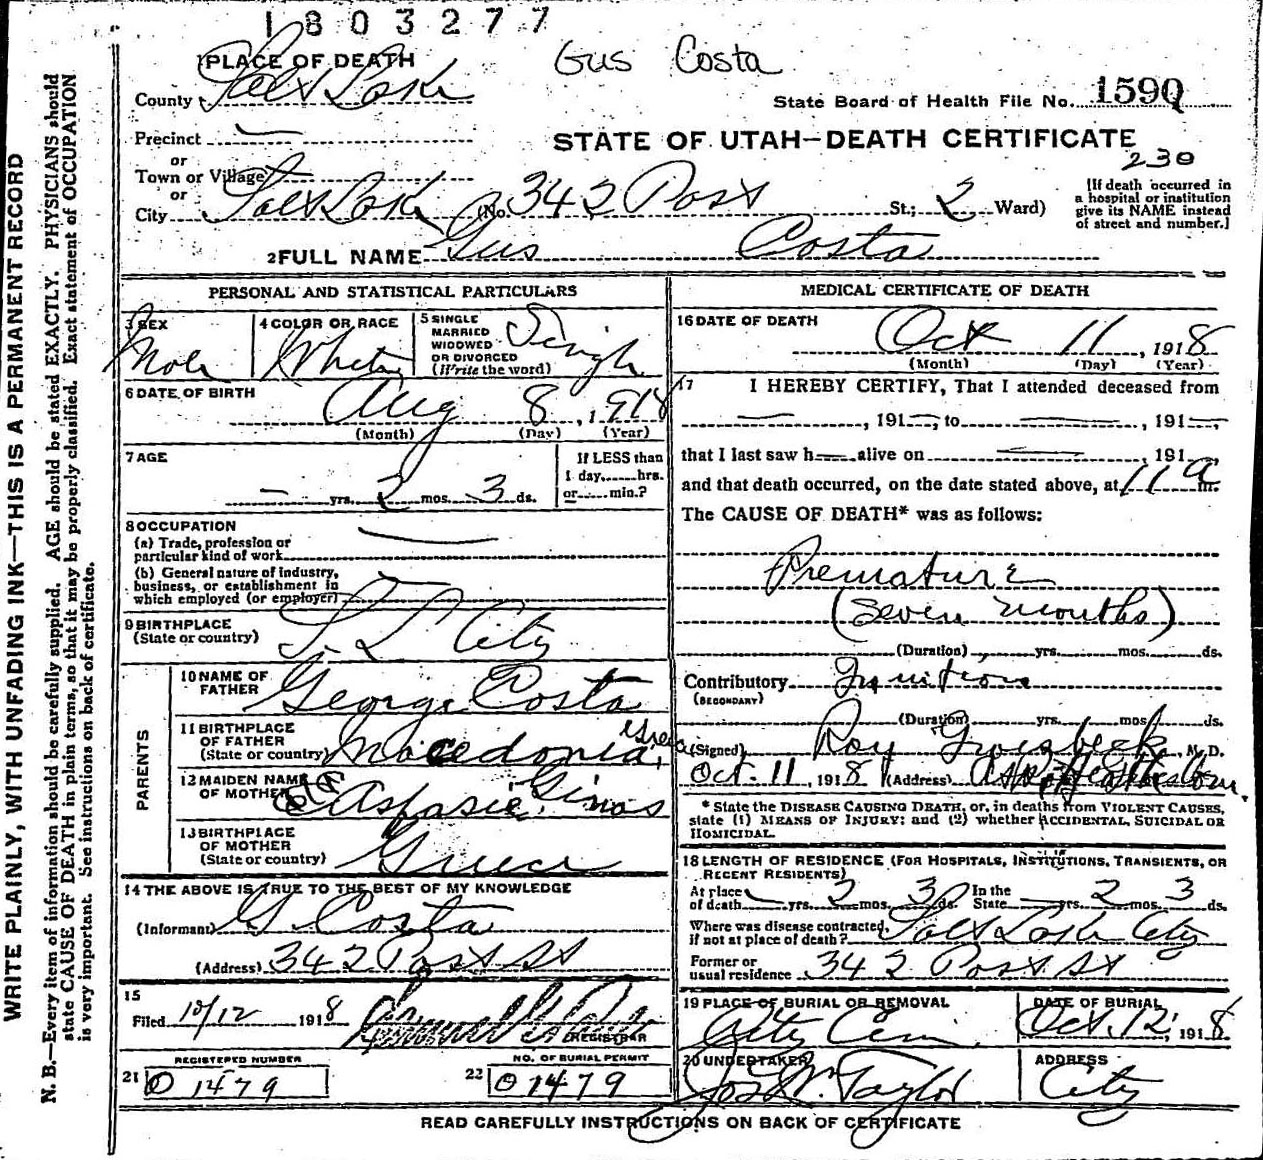 1803277
1 PLACE OF DEATH
Gus Costa
County Salt Lake
State Board of Health File No. 1590
Precinct
STATE OF UTAH—DEATH CERTIFICATE
or
230
Town or Village
or
City Salt Lake (No. 342 Post St.; 2 Ward)
[If death occurred in
a hospital or institution
give its NAME instead
of street and number.]
2 FULL NAME Gus Costa
PERSONAL AND STATISTICAL PARTICULARS
3 SEX
Male
4 COLOR OR RACE
White
5 SINGLE
MARRIED
WIDOWED
OR DIVORCED
(Write the word)
Single
6 DATE OF BIRTH
Aug 8, 1918
(Month) (Day) (Year)
7 AGE
— yrs. 2 mos. 3 ds.
If LESS than
1 day,......hrs.
or......min.?
8 OCCUPATION
(a) Trade, profession or
particular kind of work
(b) General nature of industry,
business, or establishment in
which employed (or employer)
9 BIRTHPLACE
(State or country)
S L City
PARENTS
10 NAME OF
FATHER
George Costa
11 BIRTHPLACE
OF FATHER
(State or country)
Macedonia, Greece
12 MAIDEN NAME
OF MOTHER
Aspasia Ginos
13 BIRTHPLACE
OF MOTHER
(State or country)
Greece
14 THE ABOVE IS TRUE TO THE BEST OF MY KNOWLEDGE
(Informant) G. Costa
(Address) 342 Post St
15
Filed 10/12 1918
REGISTRAR
REGISTERED NUMBER
21 01479
NO. OF BURIAL PERMIT
22 01479
MEDICAL CERTIFICATE OF DEATH
16 DATE OF DEATH
Oct 11, 1918
(Month) (Day) (Year)
17 I HEREBY CERTIFY, That I attended deceased from
—, 191—, to —, 191—,
that I last saw h— alive on —, 191
and that death occurred, on the date stated above, at 11 a m.
The CAUSE OF DEATH* was as follows:
Premature
(seven months)
(Duration) yrs. mos. ds.
Contributory Inanition
(SECONDARY)
(Duration) yrs. mos. ds.
(Signed) Roy Groesbeck M. D.
Oct. 11, 1918 (Address)
* State the DISEASE CAUSING DEATH, or, in deaths from VIOLENT CAUSES,
state (1) MEANS OF INJURY; and (2) whether ACCIDENTAL, SUICIDAL OR
HOMICIDAL.
18 LENGTH OF RESIDENCE (FOR HOSPITALS, INSTITUTIONS, TRANSIENTS, OR
RECENT RESIDENTS)
At place
of death — yrs. 2 mos. 3 ds. In the
State — yrs. 2 mos. 3 ds.
Where was disease contracted,
if not at place of death? Salt Lake City
Former or
usual residence 342 Post St
19 PLACE OF BURIAL OR REMOVAL
City Cem.
DATE OF BURIAL
Oct. 12, 1918
20 UNDERTAKER
Jos. Wm Taylor
ADDRESS
City
READ CAREFULLY INSTRUCTIONS ON BACK OF CERTIFICATE
WRITE PLAINLY, WITH UNFADING INK—THIS IS A PERMANENT RECORD
N. B.—Every item of information should be carefully supplied. AGE should be stated EXACTLY. PHYSICIANS should
state CAUSE OF DEATH in plain terms, so that it may be properly classified. Exact statement of OCCUPATION
is very important. See instructions on back of certificate.